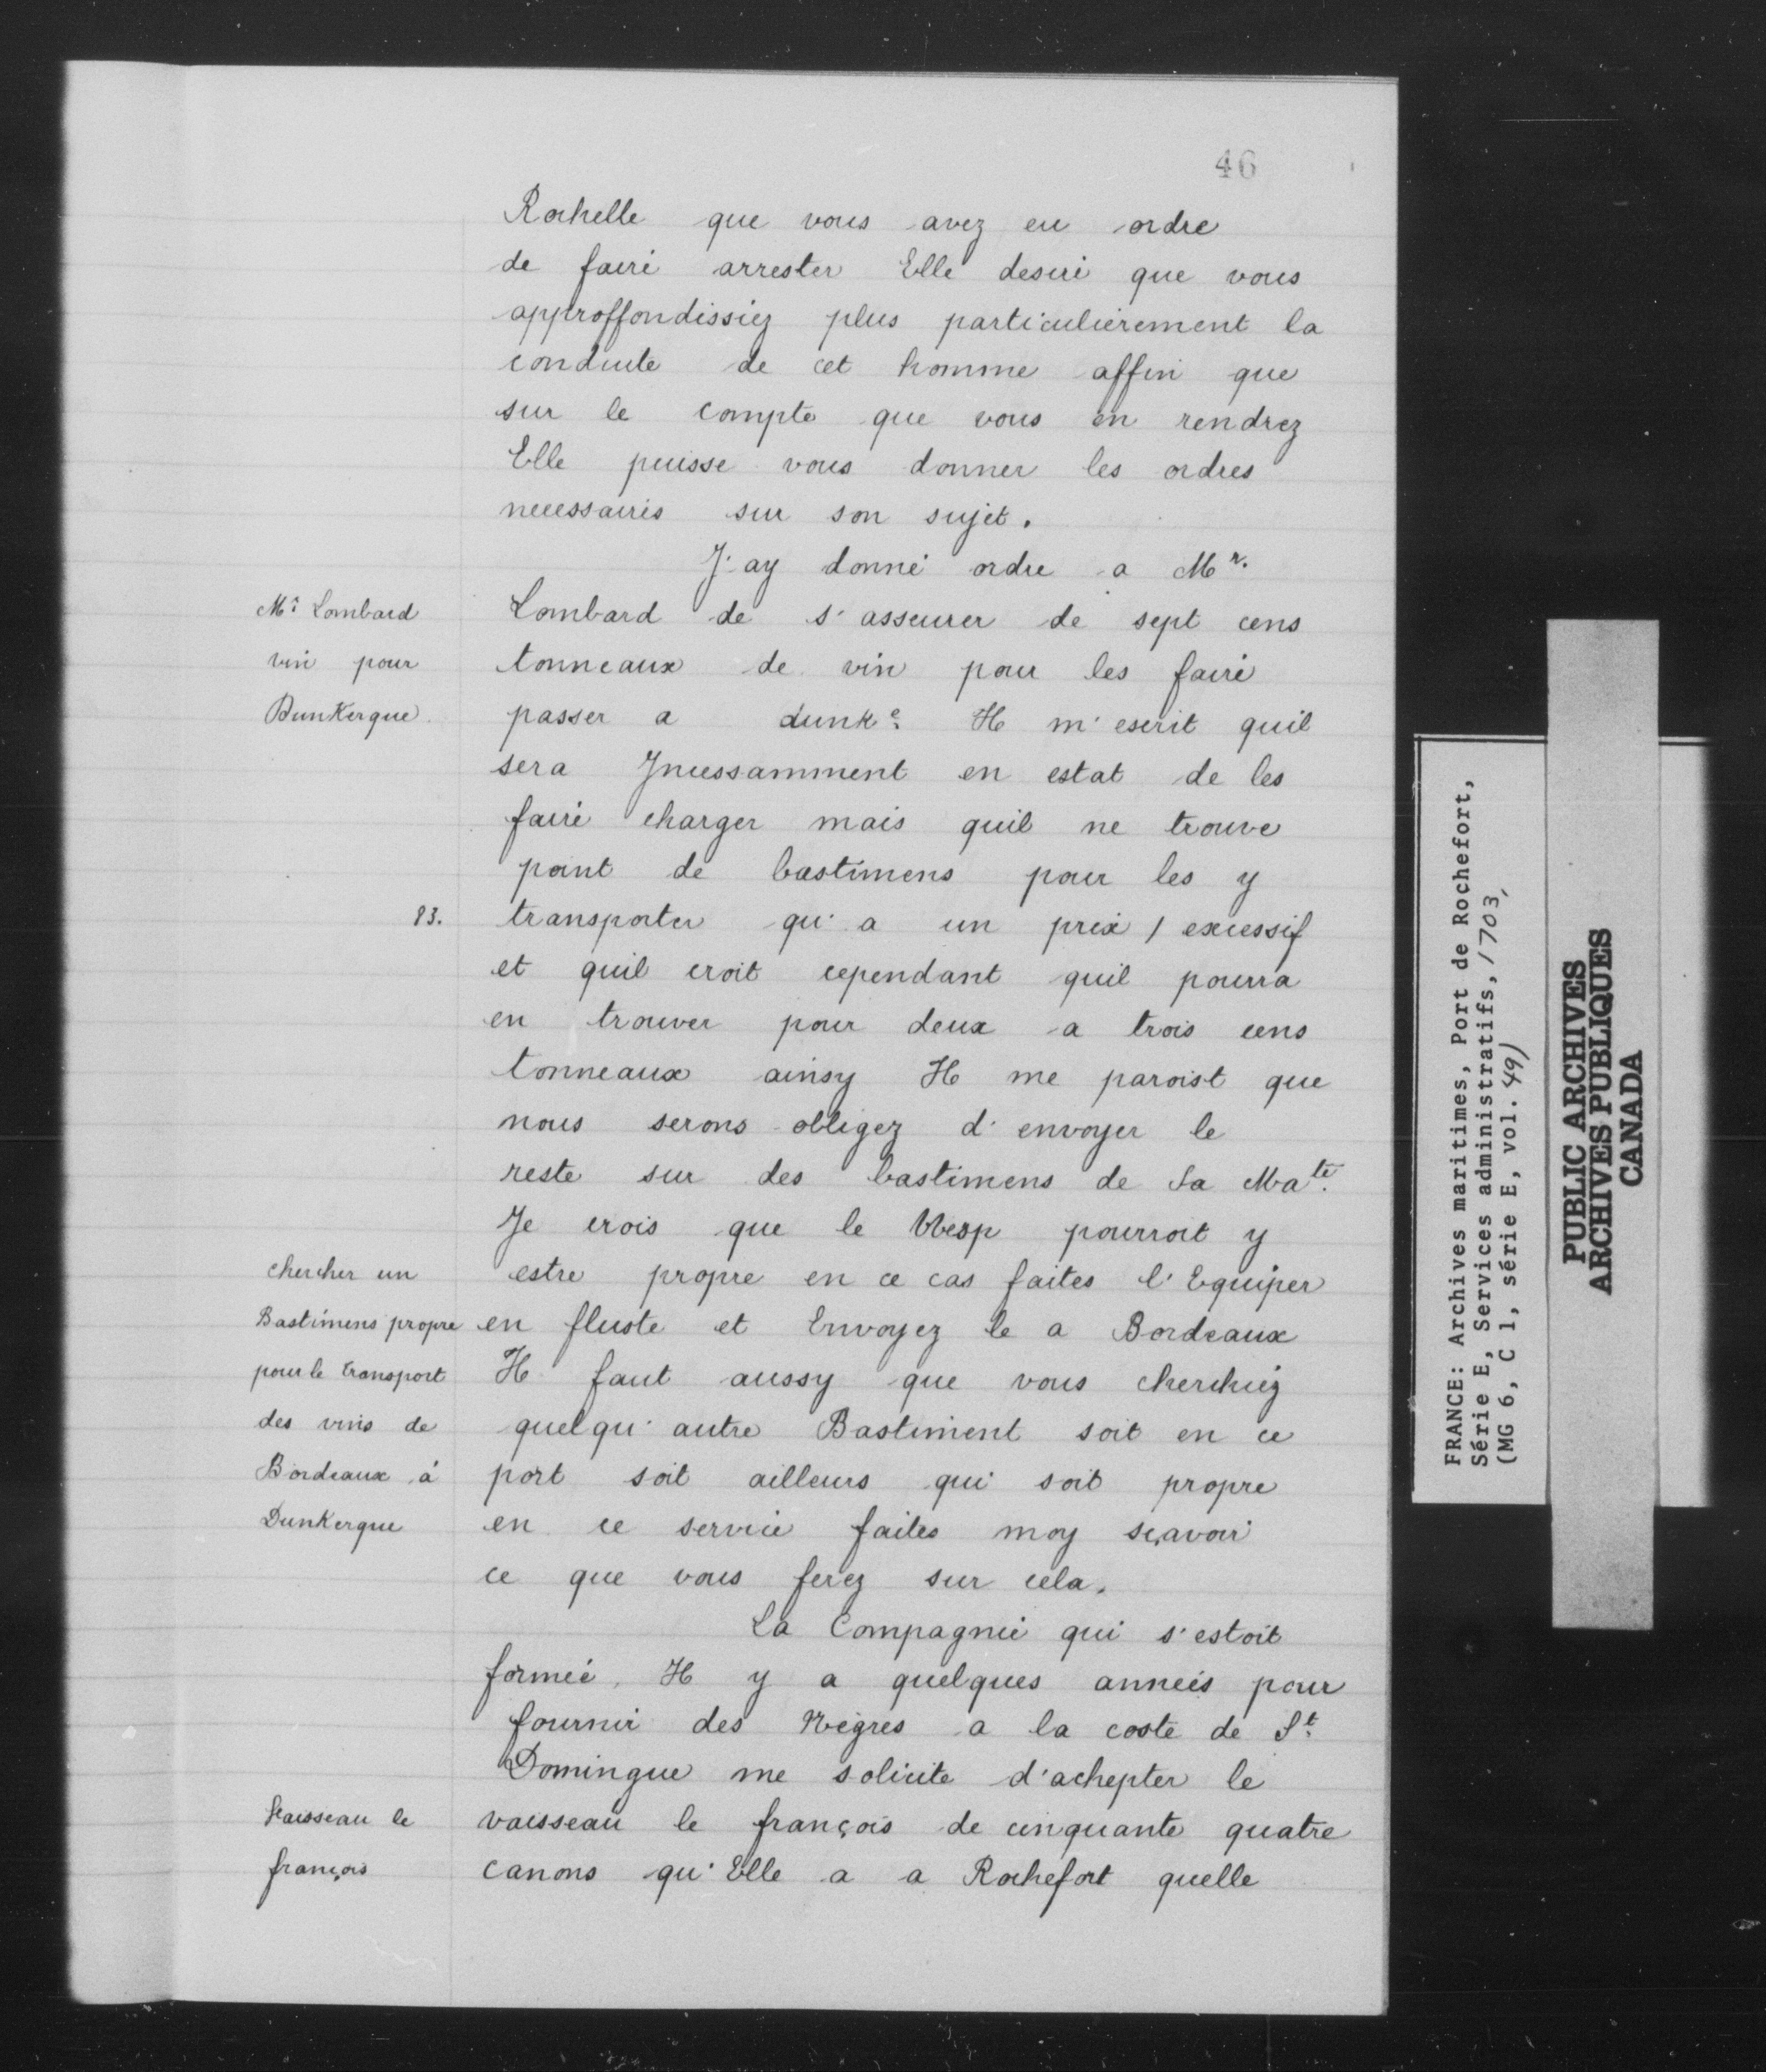 46
Rochelle que vous avez eu ordre
de faire arrester Elle desire que vous
approffondissiez plus particulierement la
conduite de cet homme affin que
sur le compte que vous en rendrez
Elle puisse vous donner les ordres
necessaires sur son sujet.
J'ay donné ordre a Mr.
Mr Lombard
vin pour
Dunkerque.
Lombard de s'asseurer de sept cens
tonneaux de vin pour les faire
passer a dunke. Il m'escrit quil
sera Incessamment en estat de les
faire charger mais quil ne trouve
point de bastimens pour les y
83.
transporter qu'a un prix / excessif
et quil croit cependant quil pourra
en trouver pour deux a trois cens
tonneaux ainsy Il me paroist que
nous serons obligez d'envoyer le
reste sur des bastimens de Sa Maté.
Je crois que le Wesp pourroit y
chercher un
Bastimens propre
pour le transport
des vins de
Bordeaux à
Dunkerque
estre propre en ce cas faites l'Equiper
en fluste et Envoyez le a Bordeaux
Il faut aussy que vous cherchiez
quelqu'autre Bastiment soit en ce
port soit ailleurs qui soit propre
en ce service faites moy sçavoir
ce que vous ferez sur cela.
La Compagnie qui s'estoit
formée. Il y a quelques années pour
fournir des Nègres a la coste de St.
Domingue me solicite d'achepter le
Vaisseau le
françois
vaisseau le françois de cinquante quatre
canons qu'Elle a a Rochefort quelle
FRANCE: Archives maritimes, Port de Rochefort,
Série E, Services administratifs, 1703,
(MG 6, C 1, série E, vol. 49)
PUBLIC ARCHIVES
ARCHIVES PUBLIQUES
CANADA